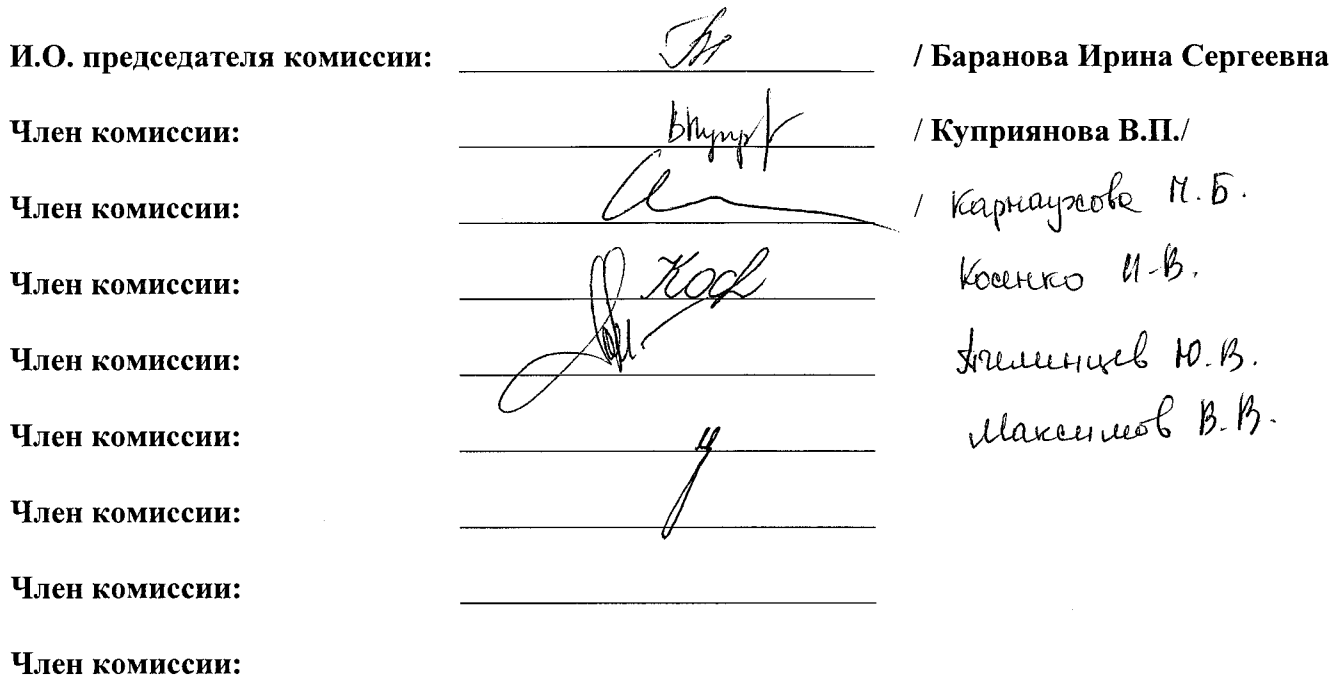 И.О. председателя комиссии: / Баранова Ирина Сергеевна
Член комиссии: / Куприянова В.П./
Член комиссии: / Карнаухова Б.
Член комиссии: Косенко И.В.
Член комиссии: Ю.В.
Член комиссии: Максимов В.В.
Член комиссии:
Член комиссии:
Член комиссии: